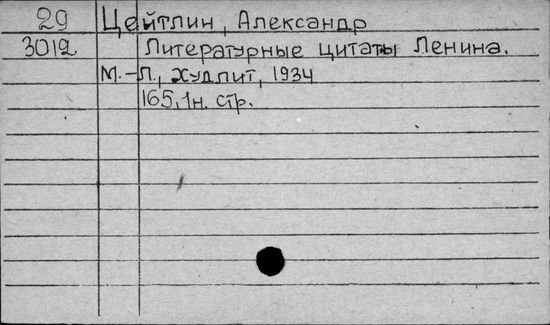 29 Цейтлин, Александр
3012 Литературные цитаты Ленина.
М.-Л., Худлит, 1934
165,1н. стр.